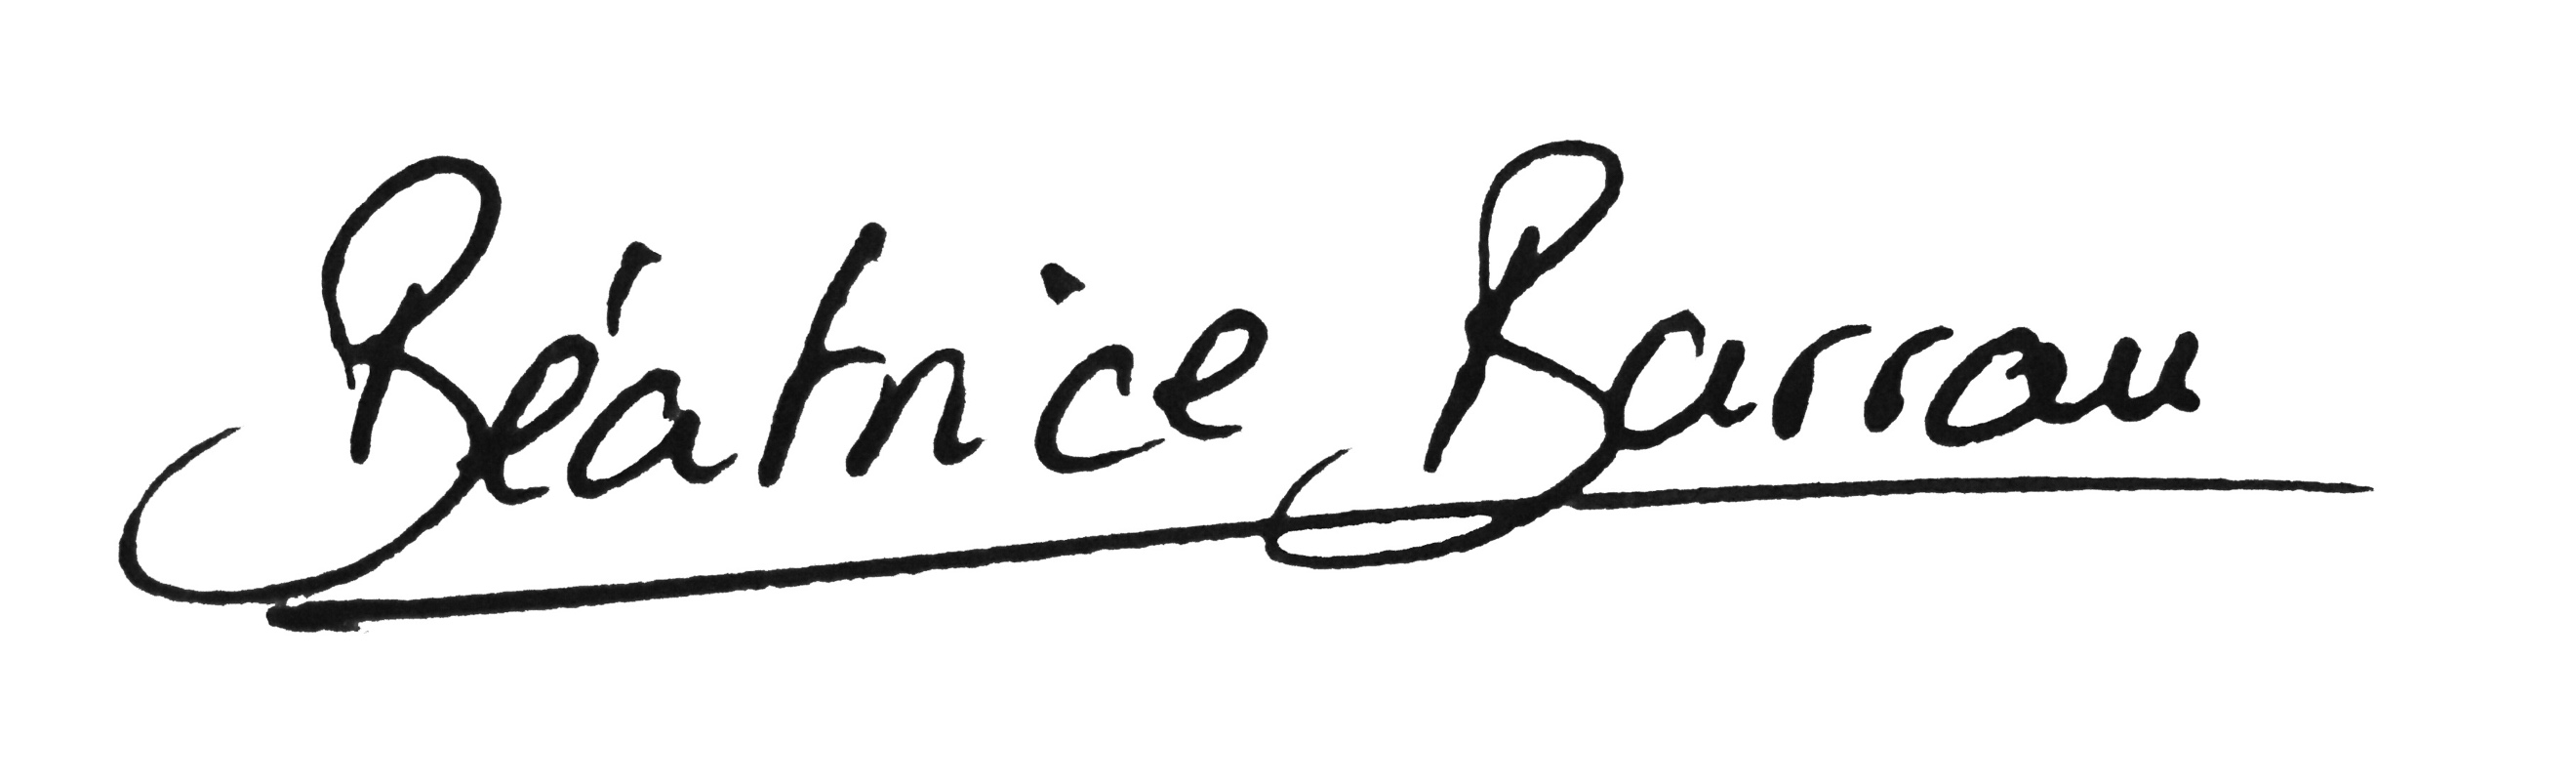 Béatrice Barrau